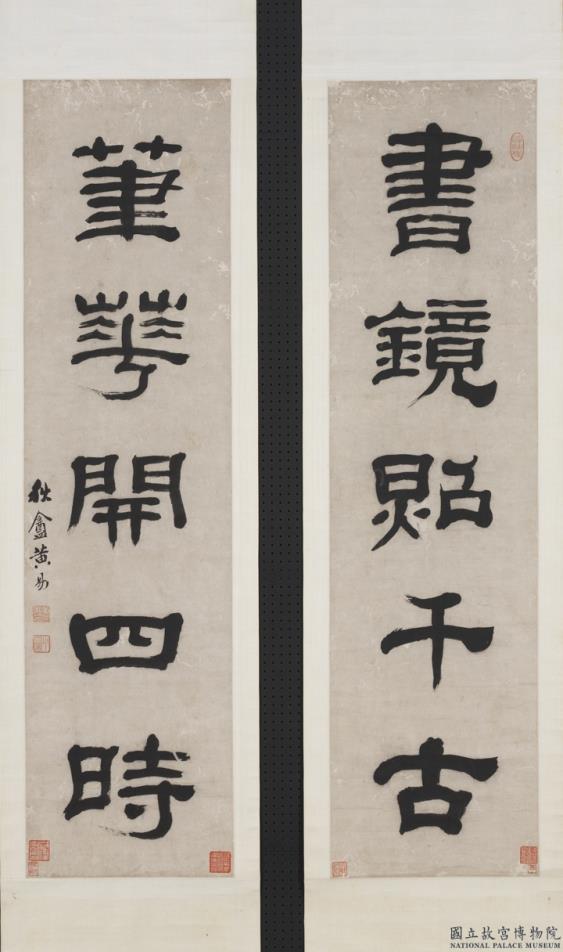 書鏡照千古
筆華開四時
秋盦黃易
國立故宮博物院
NATIONAL PALACE MUSEUM